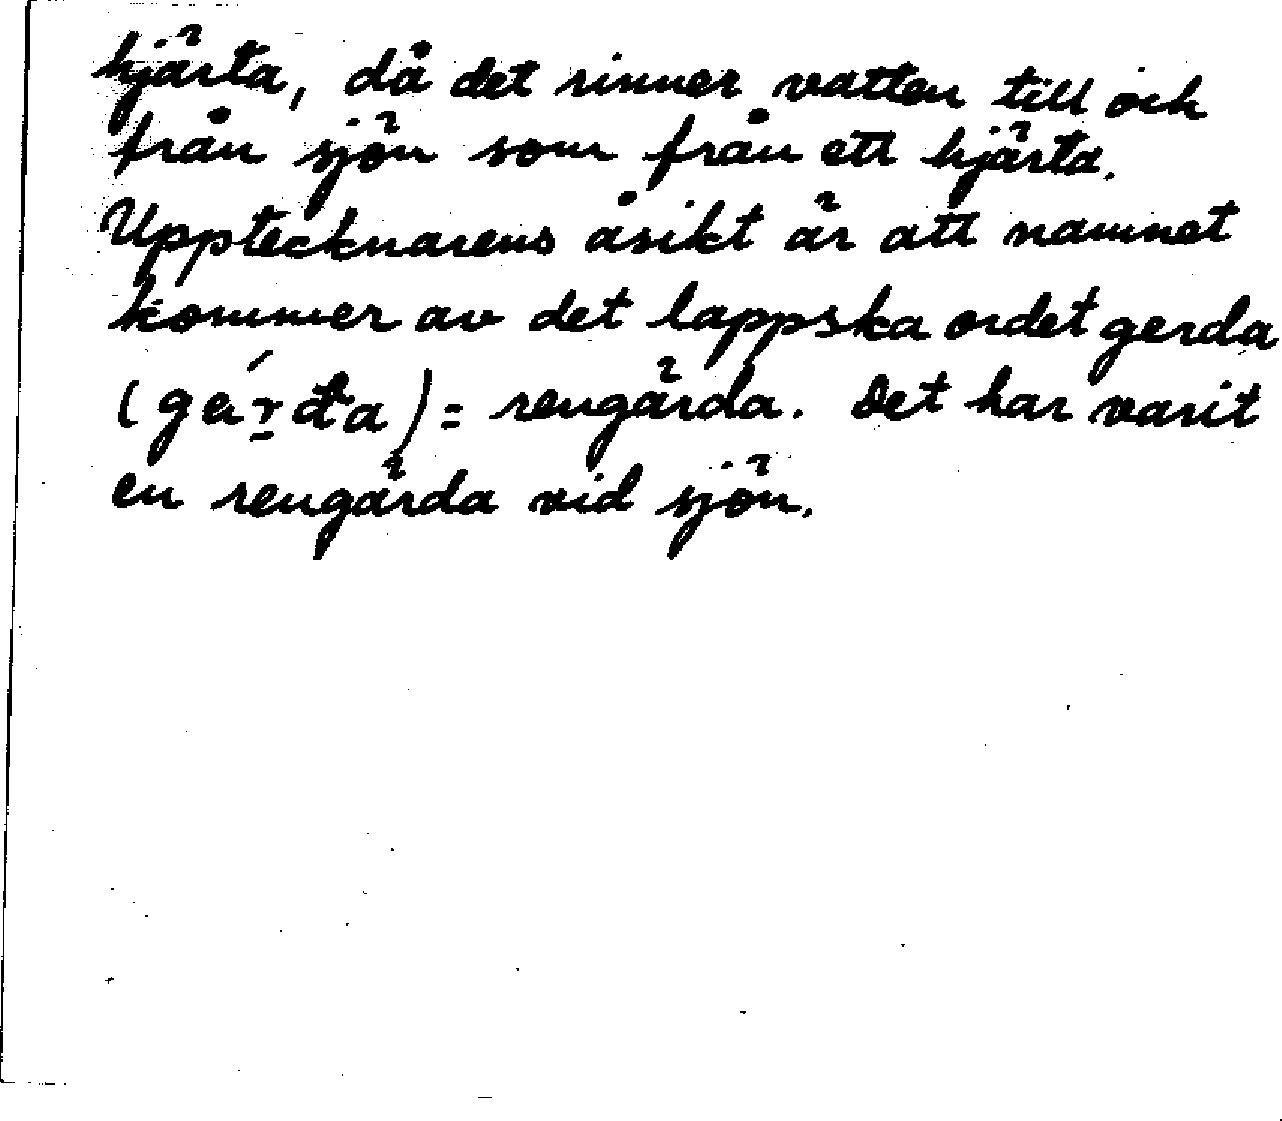 hjärta, då det rinner vatten till och
från sjön som från ett hjärta.
Upptecknarens åsikt är att namnet
kommer av det lappska ordet gerda
(gǽr̲đa) = rengärda. Det har varit
en rengärda vid sjön.